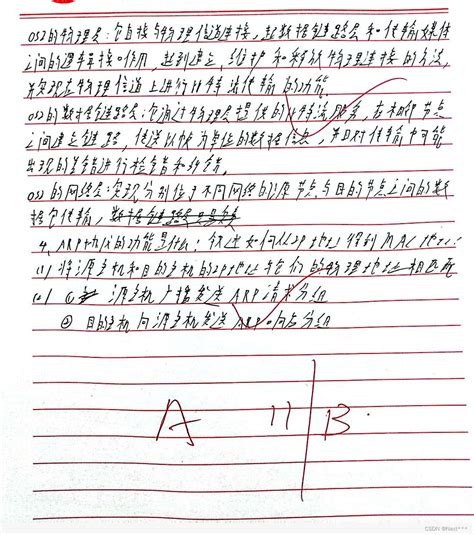 OSI的物理层：它直接与物理信道连接，起数据链路层和传输媒体
之间的逻辑接口作用，起到建立、维护和释放物理连接的方法，
并实现在物理信道上进行比特流传输的功能。
OSI的数据链路层：它通过物理层提供的比特流服务，在相邻节点
之间建立链路，传送以帧为单位的数据信息，并且对传输中可能
出现的差错进行检错和纠错。
OSI的网络层：实现分别位于不同网络的源节点与目的节点之间的数
据包传输，
4、ARP协议的功能是什么：叙述如何从IP地址得到MAC地址：
(1) 将源主机和目的主机的IP地址与它们的物理地址相匹配
(2) ① 源主机广播发送ARP请求分组
② 目的主机向源主机发送ARP响应分组
A 11 B
CSDN @Next***